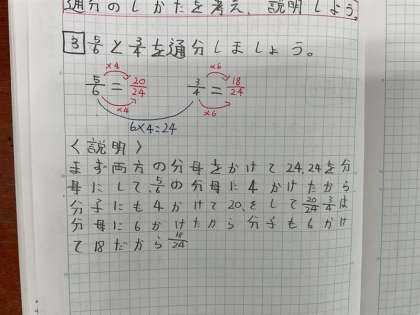 通分のしかたを考え、説明しよう。
3 5/6と3/4を通分しましょう。
×4 ×6
5/6=20/24 3/4=18/24
×4 ×6
6×4=24
〈説明〉
まず両方の分母をかけて24,24を分
母にして、5/6の分母に4かけたから
分子にも4かけて20,そして20/24 3/4は
分母に6かけたから分子も6かけ
て18だから18/24